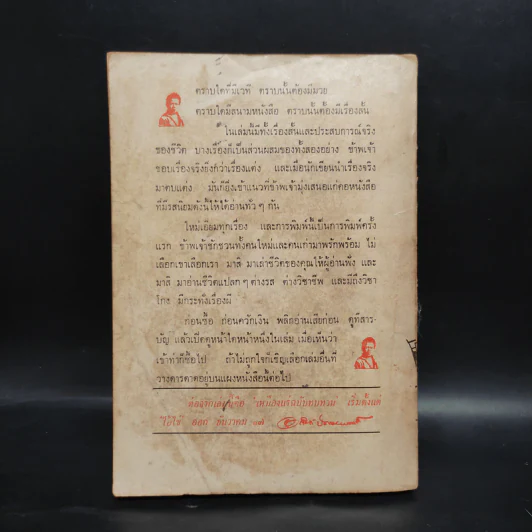 ตราบใดที่มีเวที ตราบนั้นต้องมีมวย
ตราบใดมีสนามหนังสือ ตราบนั้นต้องมีเรื่องสั้น
ในเล่มนี้มีทั้งเรื่องสั้นและประสบการณ์จริง
ของชีวิต บางเรื่องก็เป็นส่วนผสมของทั้งสองอย่าง ข้าพเจ้า
ชอบเรื่องจริงยิ่งกว่าเรื่องแต่ง และเมื่อนักเขียนนำเรื่องจริง
มาตบแต่ง มันก็ยิ่งเข้าแนวที่ข้าพเจ้ามุ่งเสนอแก่คอหนังสือ
ที่มีรสนิยมดังนี้ให้ได้อ่านทั่ว ๆ กัน
ใหม่เอี่ยมทุกเรื่อง และการพิมพ์นี้เป็นการพิมพ์ครั้ง
แรก ข้าพเจ้าชักชวนทั้งคนใหม่และคนเก่ามาพรักพร้อม ไม่
เลือกเขาเลือกเรา มาสิ มาเล่าชีวิตของคุณให้ผู้อ่านฟัง และ
มาสิ มาอ่านชีวิตแปลก ๆ ต่างรส ต่างวิชาชีพ และมีถึงวิชา
โกง มีกระทั่งเรื่องผี
ก่อนซื้อ ก่อนควักเงิน พลิกอ่านเสียก่อน ดูที่สาร-
บัญ แล้วเปิดดูหน้าใดหน้าหนึ่งในเล่ม เมื่อเห็นว่า
เข้าท่าก็ซื้อไป ถ้าไม่ถูกใจก็เชิญเลือกเล่มอื่นที่
วางดารดาดอยู่บนแผงหนังสือนี้ต่อไป
เริ่มตั้งแต่
ธันวาคม